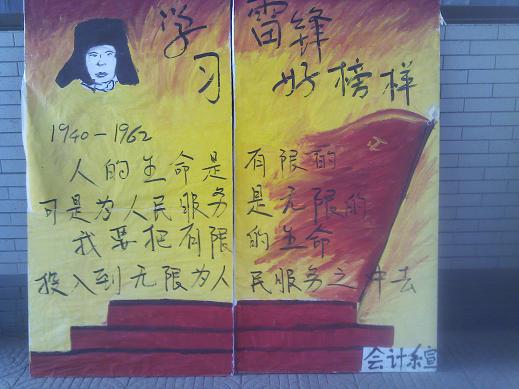 学习雷锋
好榜样
1940-1962
人的生命是有限的
可是为人民服务是无限的
我要把有限的生命
投入到无限为人民服务之中去
会计系宣